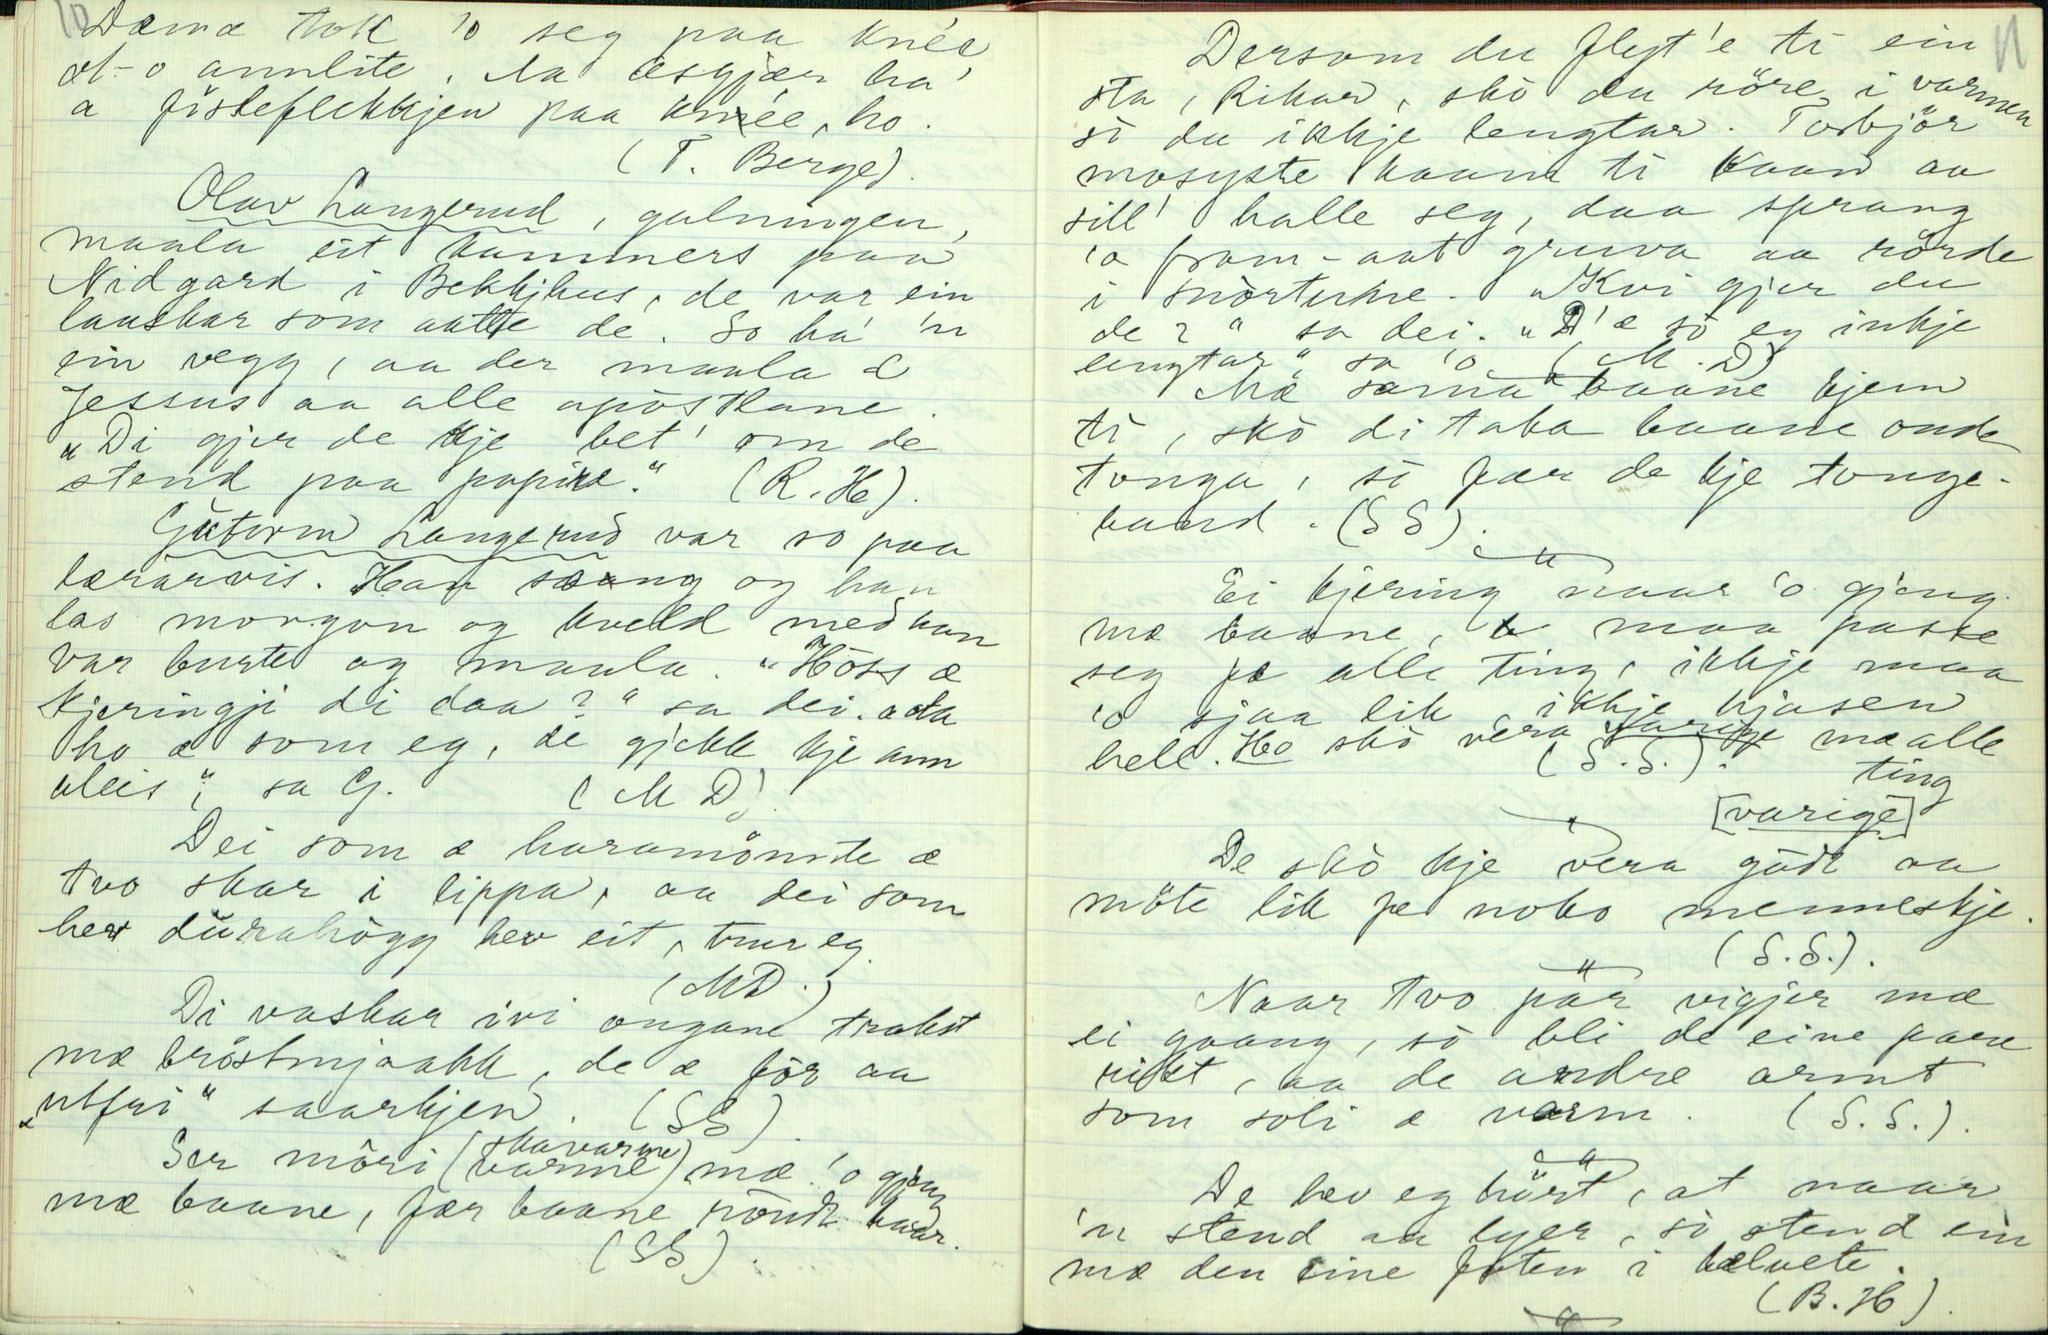 10
Dæmæ tok 'o seg paa knée
æt-o annlite. Aa æsgjær ha'
a fisteflekkjen paa knée, ho.
(T. Berge).
Olav Langerud, galningen,
maala eit kammers paa
Nidgard i Bekkjhus, de var ein
lauskar som aatte de. So ha' 'n
ein vegg, aa der maala 'n
Jessus aa alle apostlane.
"Di gjer de kje bet' om de
stend paa papire." (R. H).
Gútorm Langerud var so paa
lærarvis. Han saang og han
las morgon og kveld med han
var burte og maala. "Hóss æ
kjeringji di daa?" sa dei. "Aa
ho æ som eg, de gjekk kje ann
aleis", sa G. (M D).
Dei som æ haramönnte æ
tvo skar i lippa, aa dei som
hev dúrahögg hev eit, trur eg.
(MD.)
Di vaskar ivi ongane trakst
mæ bröstmjaakk, de æ för aa
"utfri" saarkjen. (SS).
Ser möri (skavarme varme) mæ 'o gjeng
mæ baane, fær baane röudt haar.
(SS).
11
Dersom du flyt'e ti ein
sta, Rikar, skó du röre i varmen
só du ikkje lengtar. Torbjör
mosyste kaam ti Kaas aa
sill' halle seg, daa sprang
'o fram-aat gruva aa rörde
i snörturne. "Kvi gjer du
de?" sa dei. "D'æ só eg inkje
lengtar" sa 'o. (M. D)
Mæ sama baane kjem
ti, skó di taka baane onde
tonga, só fær de kje tonge-
band. (SS).
Ei kjering naar 'o gjeng
mæ baane, maa passe
seg fe alle ting, ikkje maa
'o sjaa lik, ikkje hjasen
hell. Ho skó vera varige mæ alle
ting
(S. S.).
[varige]
De skó kje vera gödt aa
möte lik fe noko menneskje.
(S.S.).
Naar tvo pár vigjer mæ
ei gaang, só bli de eine pare
rikt, aa de andre armt
som soli æ varm. (S.S.).
De hev eg hört, at naar
'n stend aa lyer, só stend ein
mæ den eine foten i hælvete.
(B. H).